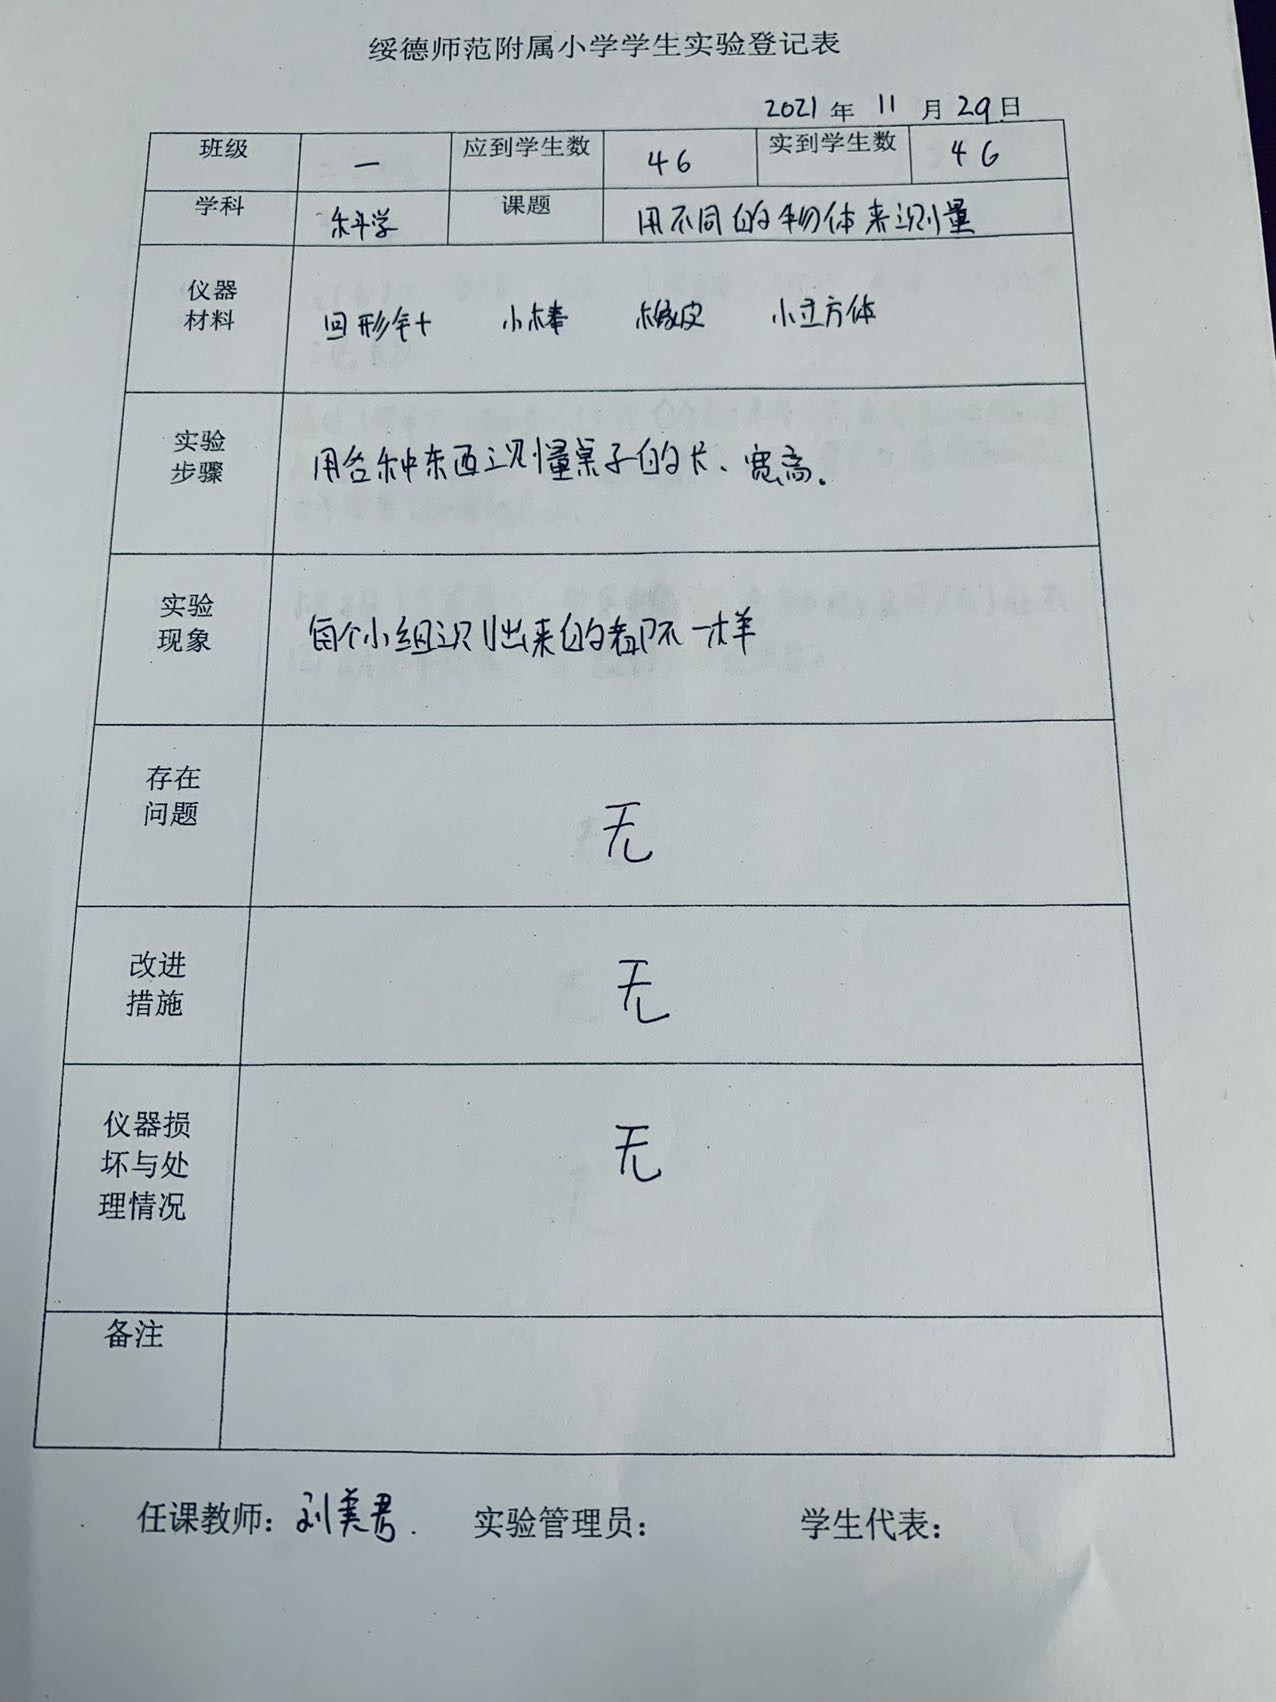 绥德师范附属小学学生实验登记表
2021年 11 月 29日
班级 一 应到学生数 46 实到学生数 46
学科 科学 课题 用不同的物体来测量
仪器
材料
回形针 小棒 橡皮 小立方体
实验
步骤
用各种东西测量桌子的长、宽高。
实验
现象
每个小组测出来的都不一样
存在
问题
无
改进
措施
无
仪器损
坏与处
理情况
无
备注
任课教师：刘美君. 实验管理员： 学生代表：